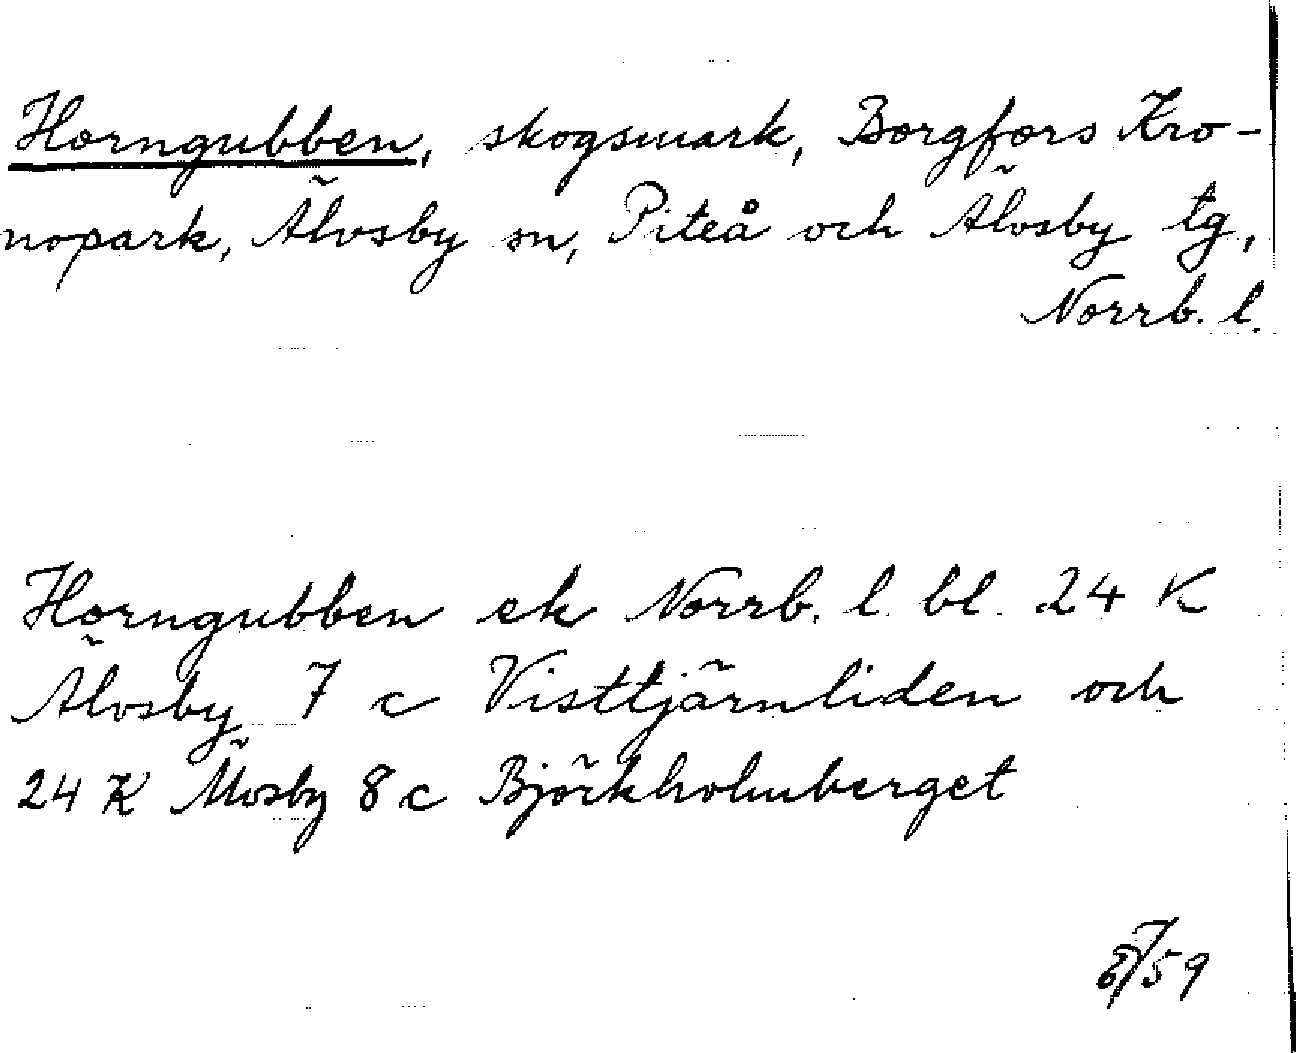 Horngubben, skogsmark, Borgfors Kro-
nopark, Älvsby sn, Piteå och Älvsby tg,
Norrb. l.
Horngubben ek Norrb. l. bl. 24 K
Älvsby 7 c Visttjärnliden och
24 K Älvsby 8 c Björkholmberget
59